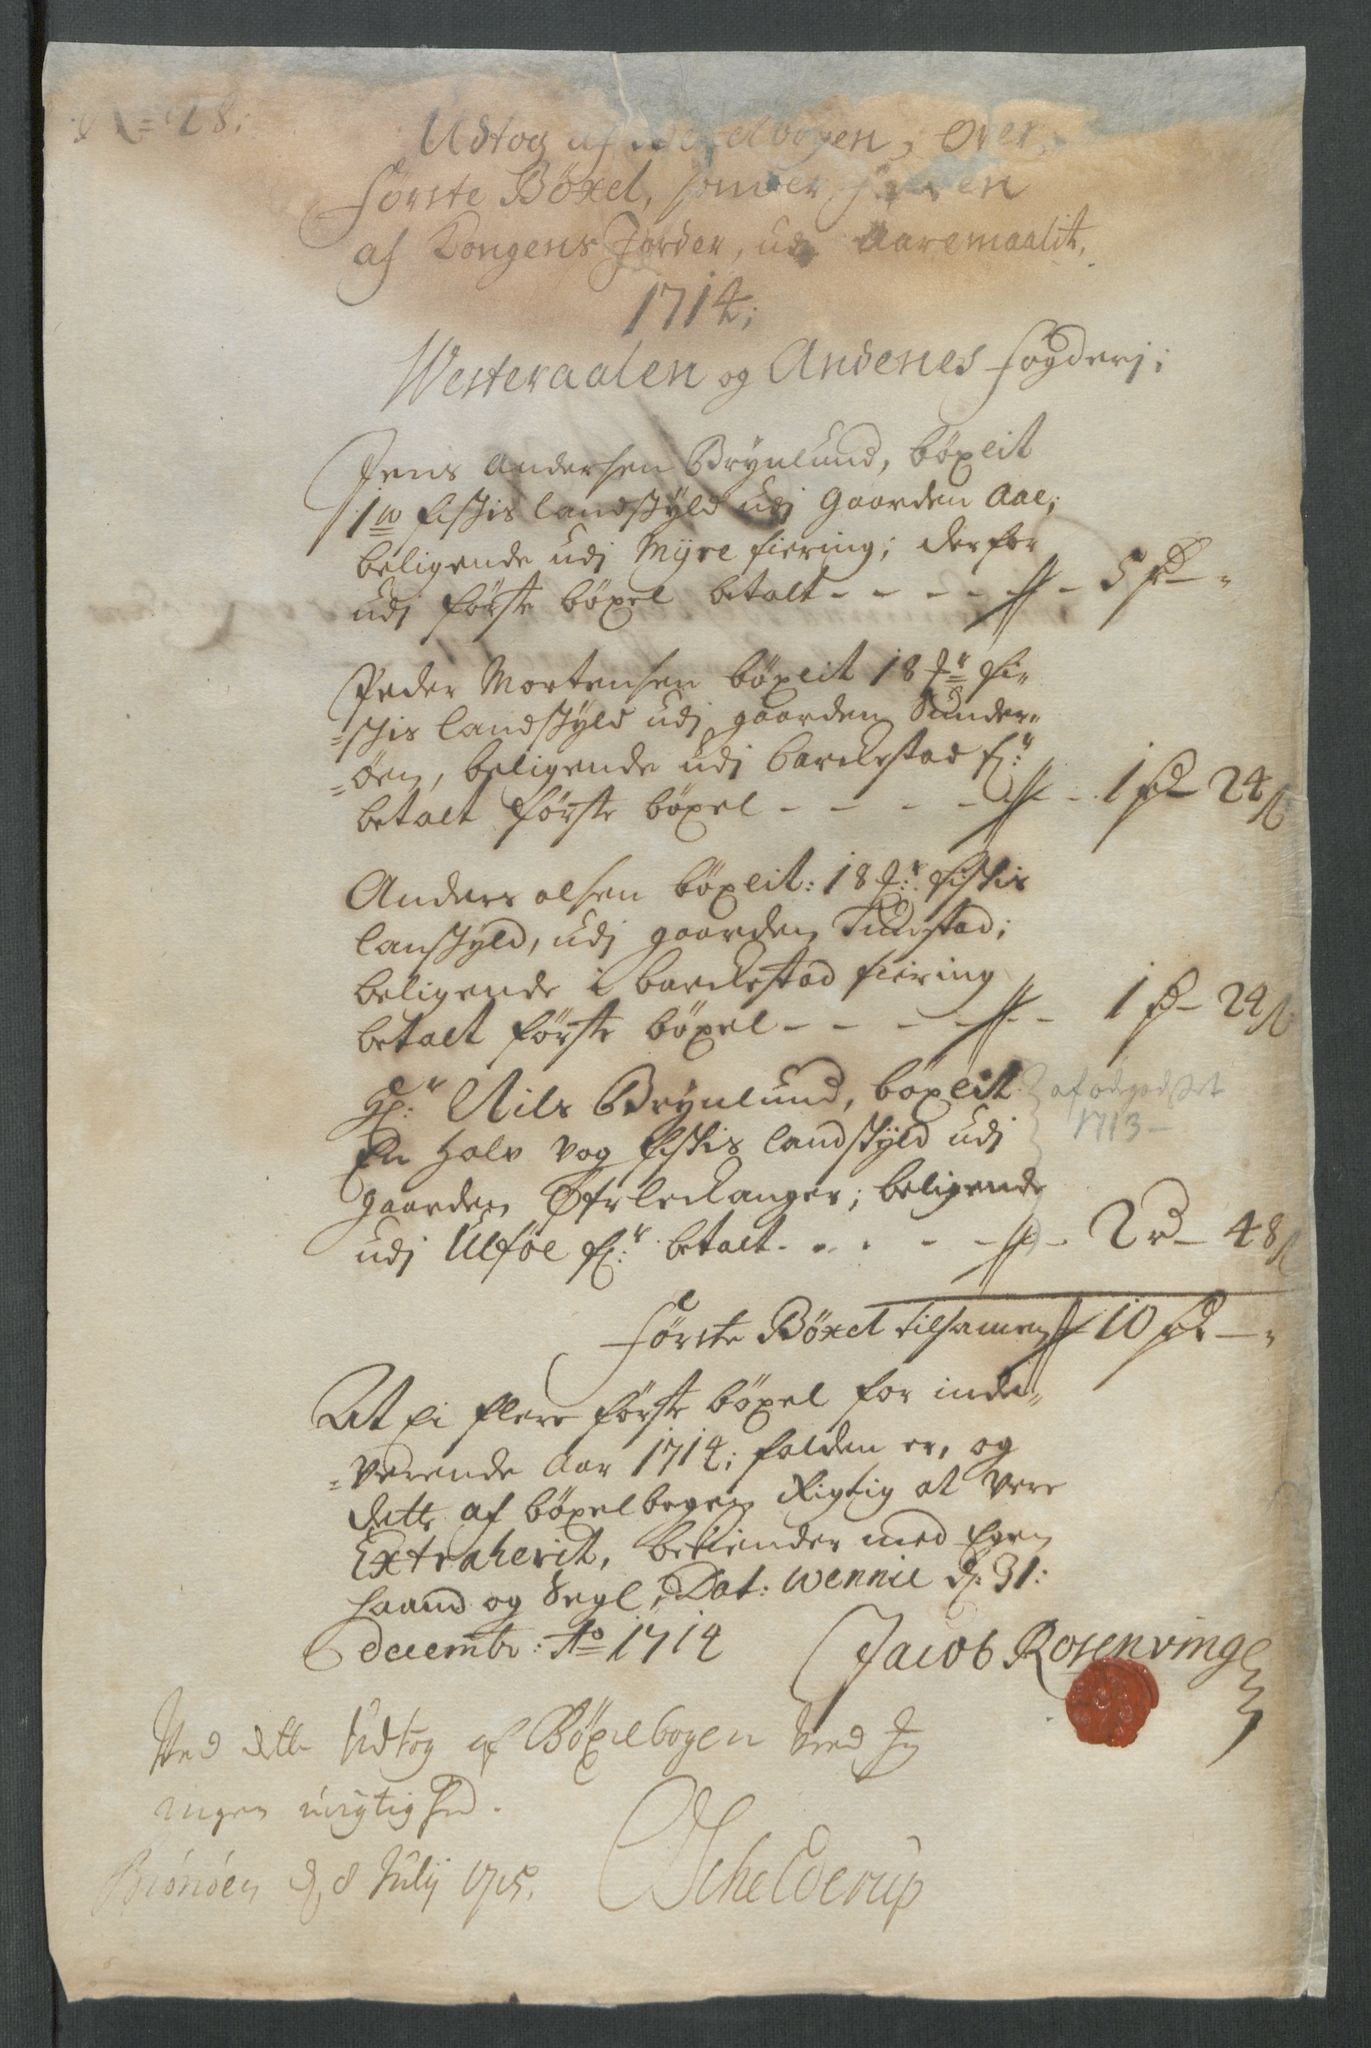 N= 18:
Udtog af Böxelbogen, Over
förste Böxel,
af Kongens Jorder, udj Aaremaalit,
1714;
Westeraalen og Andenes fögderj;
Jens Andersen Brynlund, böxlit
1 w fiskis landskyld udj Gaarden Aae,
beligende udj Myre fiering; derfor
udj förste böxel betalt - - - - - 5 rd - "
Peder Mortensen böxlit 18 fi-
=skis landskyld udj gaarden Sunder=
=öen, beligende udj barckestad f:
betalt förste böxel - - - - - 1 rd 24 s
Anders olsen böxlit: 18 fiskis
lanskyld, udj gaarden Tunstad;
beligende i barckestad fiering
betalt förste böxel - - - - - 1 rd - 24 s
Hr: Nils Brynlund, böxlit
En halv vog fiskis landskyld udj
af ödegodset
1713 -
gaarden beligende
udj Ulföe f: betalt - - - - - 2 rd - 48 s
förste Böxel tilsamen 10 rd - "
At ei flere förste böxel for inde=
=verende Aar 1714; falden er, og
dette af böxelbogen Rigtig at vere
Extraherit, bekiender med Egen
haand og Segl, Dat: Wennie d: 31:
decembr: Ao 1714
Jacob Rosenvinge
Ved dette Udtog af Böxelbogen veed Jeg
ingen urigtighed.
Brönöen d. 8 Julij 1715.
Schelderup